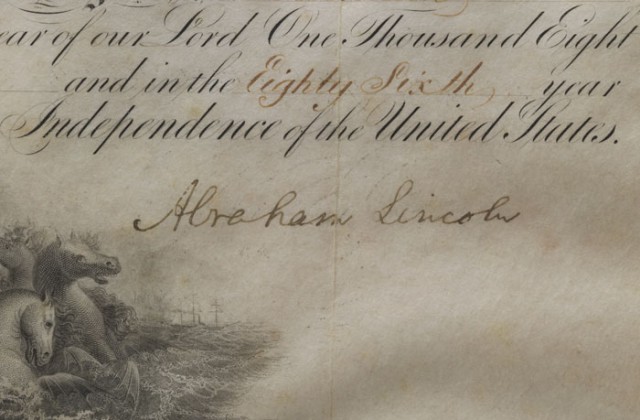 ear of our Lord One Thousand Eight
and in the Eighty Sixth year
Independence of the United States.
Abraham Lincoln